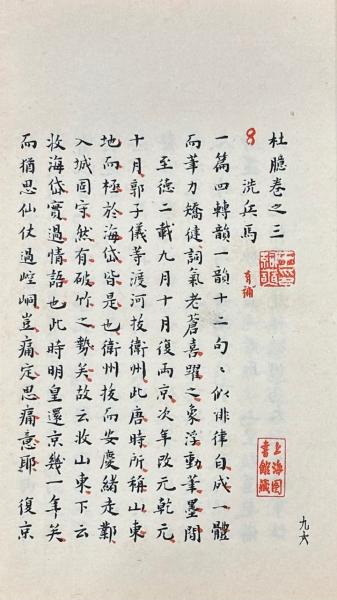 杜臆卷之三
洗兵馬
有補
一篇四轉韻一韻十二句〻似俳律自成一體
而筆力矯健詞氣老蒼喜躍之象浮動筆墨間
至德二載九月十月復兩京次年改元乾元
十月郭子儀等渡河拔衛州此唐時所稱山東
地而極於海岱皆是也衛州拔而安慶緒走鄴
入城固守然有破竹之勢矣故云收山東下云
收海岱實過情語也此時明皇還京幾一年矣
而猶思仙仗過崆峒豈痛定思痛意耶 復京
上海圖書館藏
九六